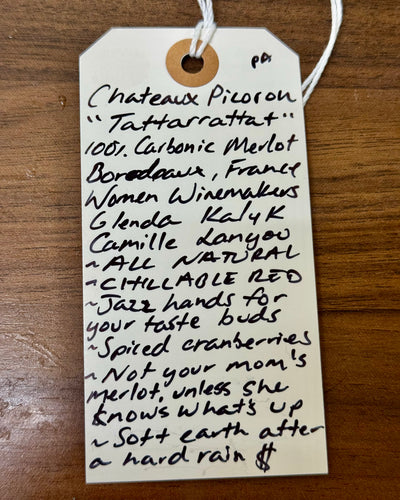 pA
Chateaux Picoron
"Tattarrattat"
100% Carbonic Merlot
Bordeaux, France
Women Winemakers
Glenda Kalyk
Camille Lanyou
~ALL NATURAL
~CHILLABLE RED
~Jazz hands for
your taste buds
~Spiced cranberries
~Not your mom's
merlot, unless she
knows what's up
~Soft earth after
a hard rain $